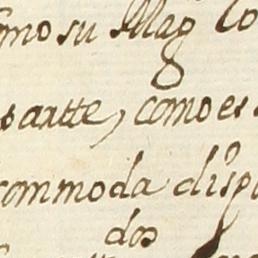 mo su Mag Co
s artte, como es
commoda disp
dos